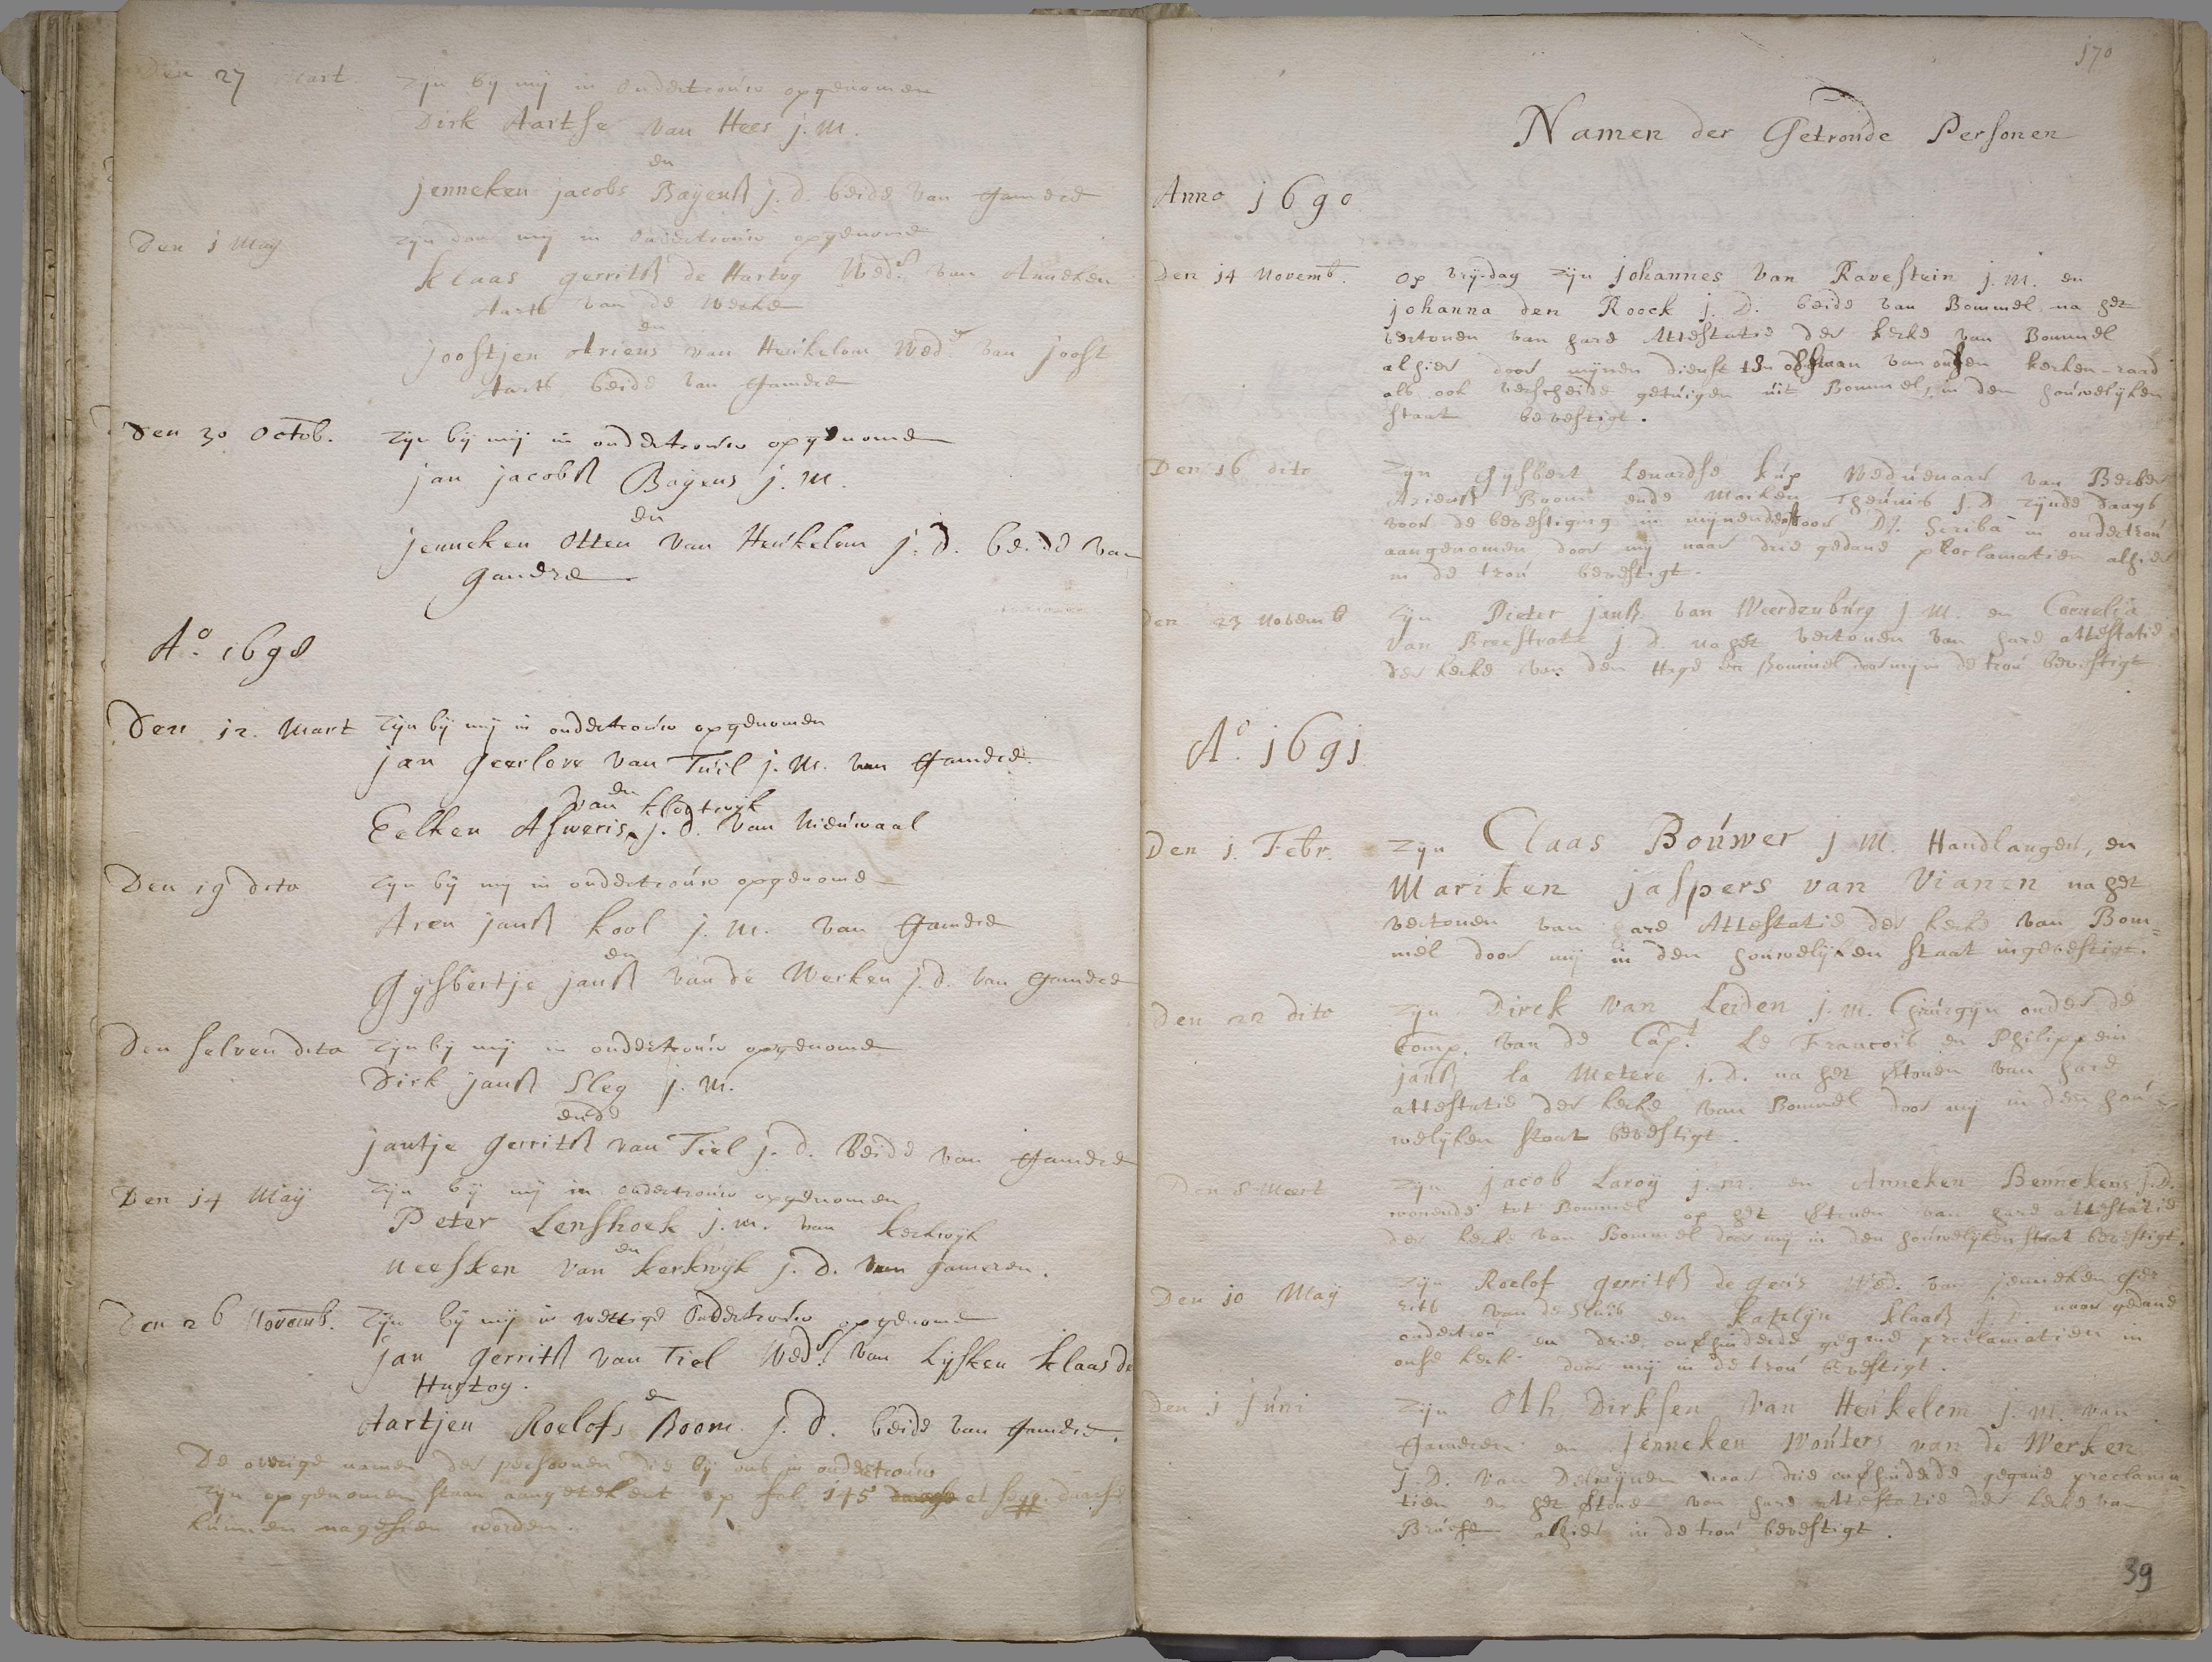 Den 27 Mart
Zijn bij mij in Ondertrouw opgenomen
Dirk Aartse van Hees j. m.
en
jenneken jacobs Bayenß j. d. beide van Gamere
Den 1 May
Zijn door mij in Ondertrouw opgenome
Klaas gerritß de Hartog Wed.r van Anneken
Aarts van de Werke
en
joostjen Ariens van Heukelom Wed.e van joost
Aarts beide van Gamere
Den 30 Octob.
Zijn bij mij in ondertrouw opgenome
jan jacobß Bayens j. m.
en
jenneken Otten van Heukelom j. d. beide van
Gamere
A.o 1698
Den 12. Mart
Zijn bij mij in ondertrouw opgenomen
jan geerlov van Tuil j. m. van Gamere
en
van
Eelken Asweris j. d. van Nieuwaal
Den 19 dito
Zijn bij mij in ondertrouw opgenome
Aren janß kool j. m. van Gamere
en
Gijsbertje janß van de Werken j. d. van Gamere
Den selven dito
Zijn bij mij in ondertrouw opgenome
Dirk janß Sleg j. m.
ende
jantje Gerritß van Tiel j. d. Beide van Gamere
Den 14 Maij
Zijn bij mij in ondertrouw opgenomen
Peter Lenshoek j. m. van kerkwijk
en
Neesken van kerkwijk j. d. van gameren.
Den 26 Novemb.
Zijn bij mij in wettige Ondertrouw opgenome
jan Gerritß van Tiel Wed.r van Lijsken klaas de
Hartog.
en
Aartjen Roelofs Boom. j. d. beide van Gamere.
De overige namen der persoonen die bij ons in ondertrouw
zijn opgenomen staan aangetekent op fol. 145 et seqq.
kunnen nagesien worden.
170
Namen der Getroude Personen
Anno 1690
Den 14 Novemb.
Op vrijdag zijn johannes van Ravestein j. m. en
johanna den Roock j. D. beide van Bommel na het
vertonen van hare Attestatie der kerke van Bommel
alhier door mijnen dienst ten van onsen kerken-raad
als ook verscheide getuigen uit Bommel, in den houwelijken
staat bevestigt.
Den 16 dito
Zijn Gijsbert Lenardse kúp Weduenaar van
Arienß Boom ende Maiken Theunis j. D. zijnde daags
voor de bevestiging in door Ds. Scriba in ondertrou
aangenomen door mij naar drie gedane proclamatien alhier
in de trou bevestigt.
Den 23 Novemb
Zijn Pieter janß van Weerdenburg j. m. en Cornelia
van Breestrate j. d. na het vertonen van hare attestatie
der kerke van den Hage en Bommel door mij in de trou bevestigt
A.o 1691
Den 1. Febr.
Zijn Claas Bouwer j. m. Handlanger, en
Mariken jaspers van Vianen na het
vertonen van hare Attestatie der kerke van Bom=
mel door mij in den houwelijken staat ingevestigt.
Den 22 dito
Zijn Dirck van Leiden j. m. Chirurgijn onder de
Comp. van de Capt. Le Francois en Philippein
janß la Metere j. d. na het vertonen van hare
attestatie der kerke van Bommel door mij in den hou=
welijken staat bevestigt.
Den 8 Meert
Zijn jacob Laroij j. m. en Anneken Bennekens j. D.
wonende tot Bommel op het vertonen van hare attestatie
der kerke van Bommel door mij in den houwelijken staat bevestigt.
Den 10 Maij
Zijn Roelof gerritß de geus Wed. van jenneken Ger
rits van de Sluis en Katelijn klaaß naar gedane
ondertrou en drie onverhinderde gegane proclamatien in
onse kerk door mij in de trou bevestigt.
Den 1 juni
Zijn Oth Dirksen van Heukelem j. m. van
Gameren en jenneken Wouters van de Werken
j. D. van Delwijnen naar drie onverhinderde gegane proclama=
tien en het vertonen van hare Attestatie der kerke van
alhier in de trou bevestigt.
39